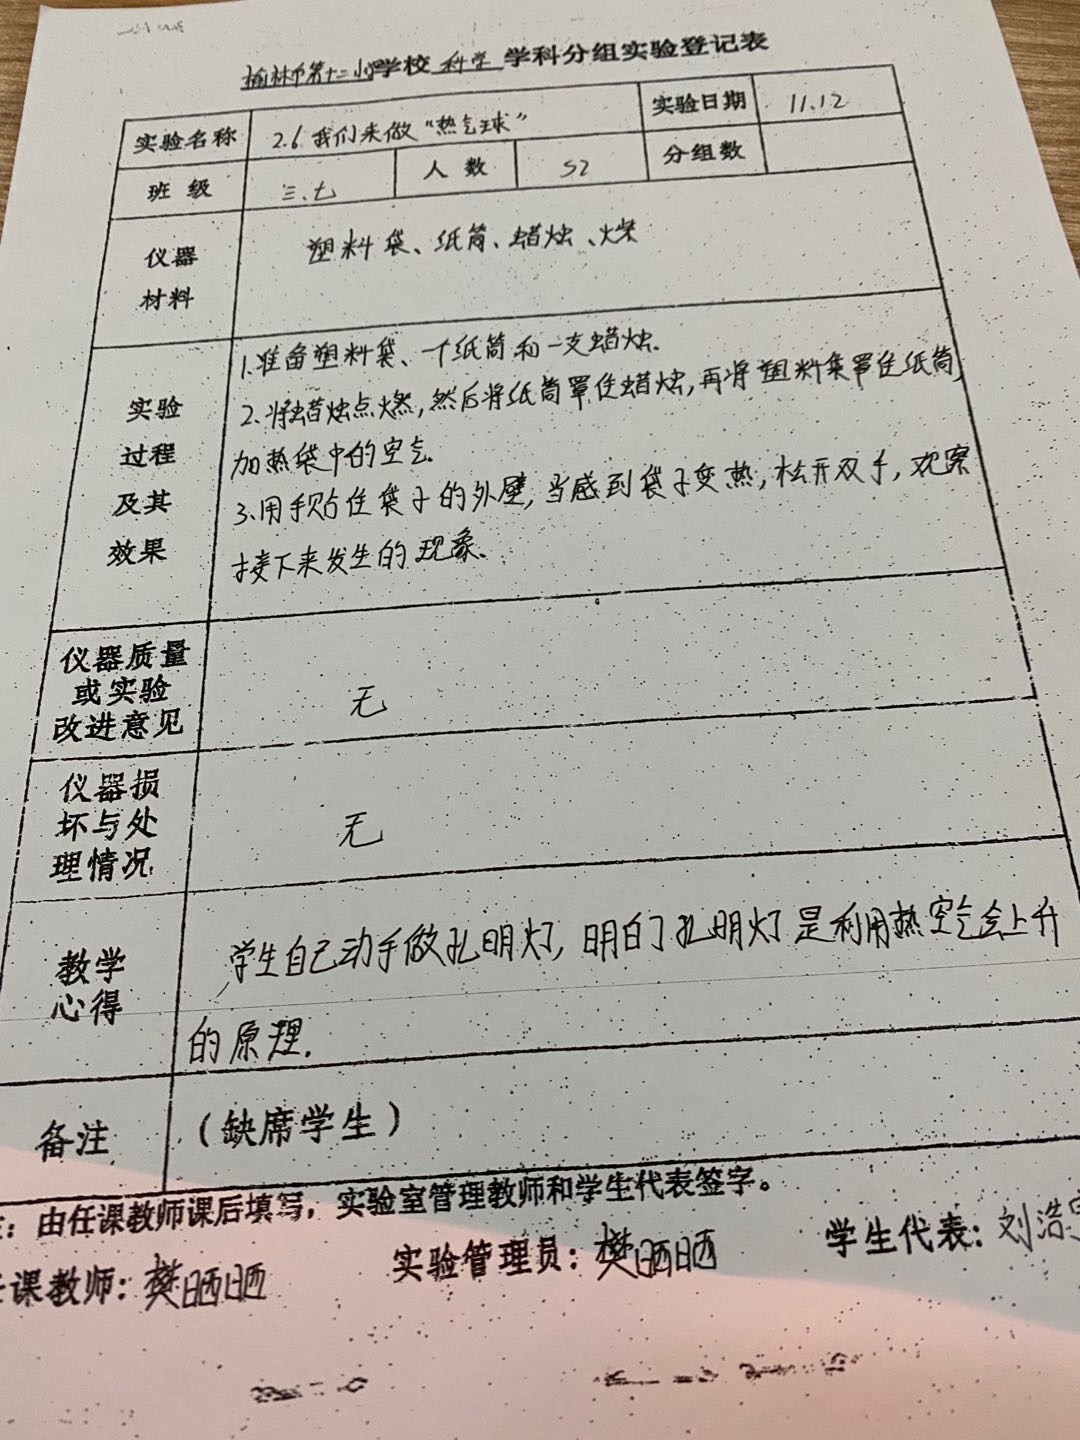 榆林市第十二小学校 科学 学科分组实验登记表
实验名称 2.6.我们来做“热气球” 实验日期 11.12
班级 三.七 人数 52 分组数
仪器材料 塑料袋、纸筒、蜡烛、火柴
实验过程及其效果
1.准备塑料袋、一个纸筒和一支蜡烛.
2.将蜡烛点燃,然后将纸筒罩住蜡烛,再将塑料袋罩住纸筒,
加热袋中的空气.
3.用手贴住袋子的外壁,当感到袋子变热,松开双手,观察
接下来发生的现象.
仪器质量或实验改进意见 无
仪器损坏与处理情况 无
教学心得 学生自己动手做孔明灯,明白了孔明灯是利用热空气会上升
的原理.
备注 (缺席学生)
:由任课教师课后填写,实验室管理教师和学生代表签字。
课教师:樊晒晒 实验管理员:樊晒晒 学生代表:刘浩